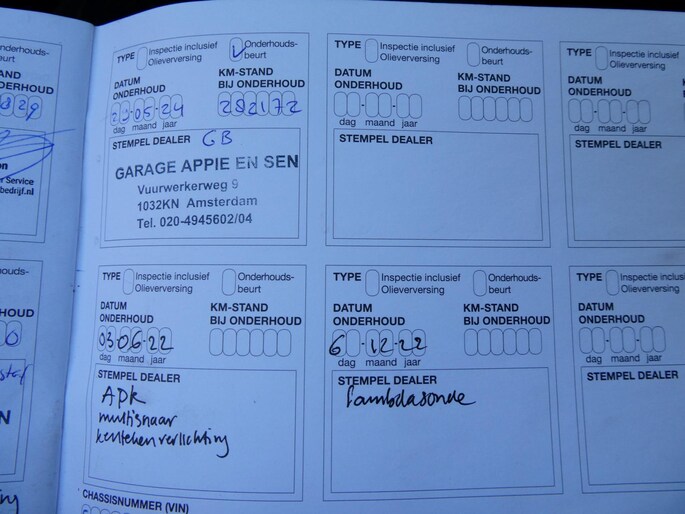 nderhouds-
eurt
AND
HOUD
829
on
r Service
bedrijf.nl
TYPE Inspectie inclusief Olieverversing Onderhouds-beurt
DATUM ONDERHOUD KM-STAND BIJ ONDERHOUD
23-05-24 282172
dag maand jaar
STEMPEL DEALER GB
GARAGE APPIE EN SEN
Vuurwerkerweg 9
1032KN Amsterdam
Tel. 020-4945602/04
TYPE Inspectie inclusief Olieverversing Onderhouds-beurt
DATUM ONDERHOUD KM-STAND BIJ ONDERHOUD
dag maand jaar
STEMPEL DEALER
TYPE Inspectie inclusief
Olieverversing
DATUM
ONDERHOUD
dag maand jaar
STEMPEL DEALER
houds-
HOUD
N
TYPE Inspectie inclusief Olieverversing Onderhouds-beurt
DATUM ONDERHOUD KM-STAND BIJ ONDERHOUD
03-06-22
dag maand jaar
STEMPEL DEALER
APK
multisnaar
kentekenverlichting
TYPE Inspectie inclusief Olieverversing Onderhouds-beurt
DATUM ONDERHOUD KM-STAND BIJ ONDERHOUD
6-12-22
dag maand jaar
STEMPEL DEALER
lambdasonde
TYPE Inspectie inclusief
Olieverversing
DATUM
ONDERHOUD
dag maand jaar
STEMPEL DEALER
CHASSISNUMMER (VIN)